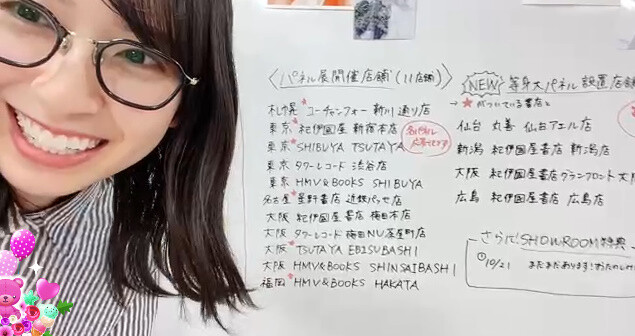 〈パネル展開催店舗(11店舗)〉
札幌★コーチャンフォー 新川通り店
東京★紀伊國屋 新宿本店
東京★SHIBUYA TSUTAYA
東京 タワーレコード 渋谷店
東京 HMV&BOOKS SHIBUYA
名古屋★星野書店 近鉄パッセ店
大阪 紀伊國屋書店 梅田本店
大阪 タワーレコード 梅田NU茶屋町店
大阪★TSUTAYA EBISUBASHI
大阪 HMV&BOOKS SHINSAIBASHI
福岡★HMV&BOOKS HAKATA
NEW 等身大パネル設置店舗
→★がついている書店と
仙台 丸善 仙台アエル店
新潟 紀伊國屋書店 新潟店
大阪 紀伊國屋書店グランフロント大阪
広島 紀伊國屋書店 広島店
さらに!SHOWROOM特典
10/21 まだまだあります!